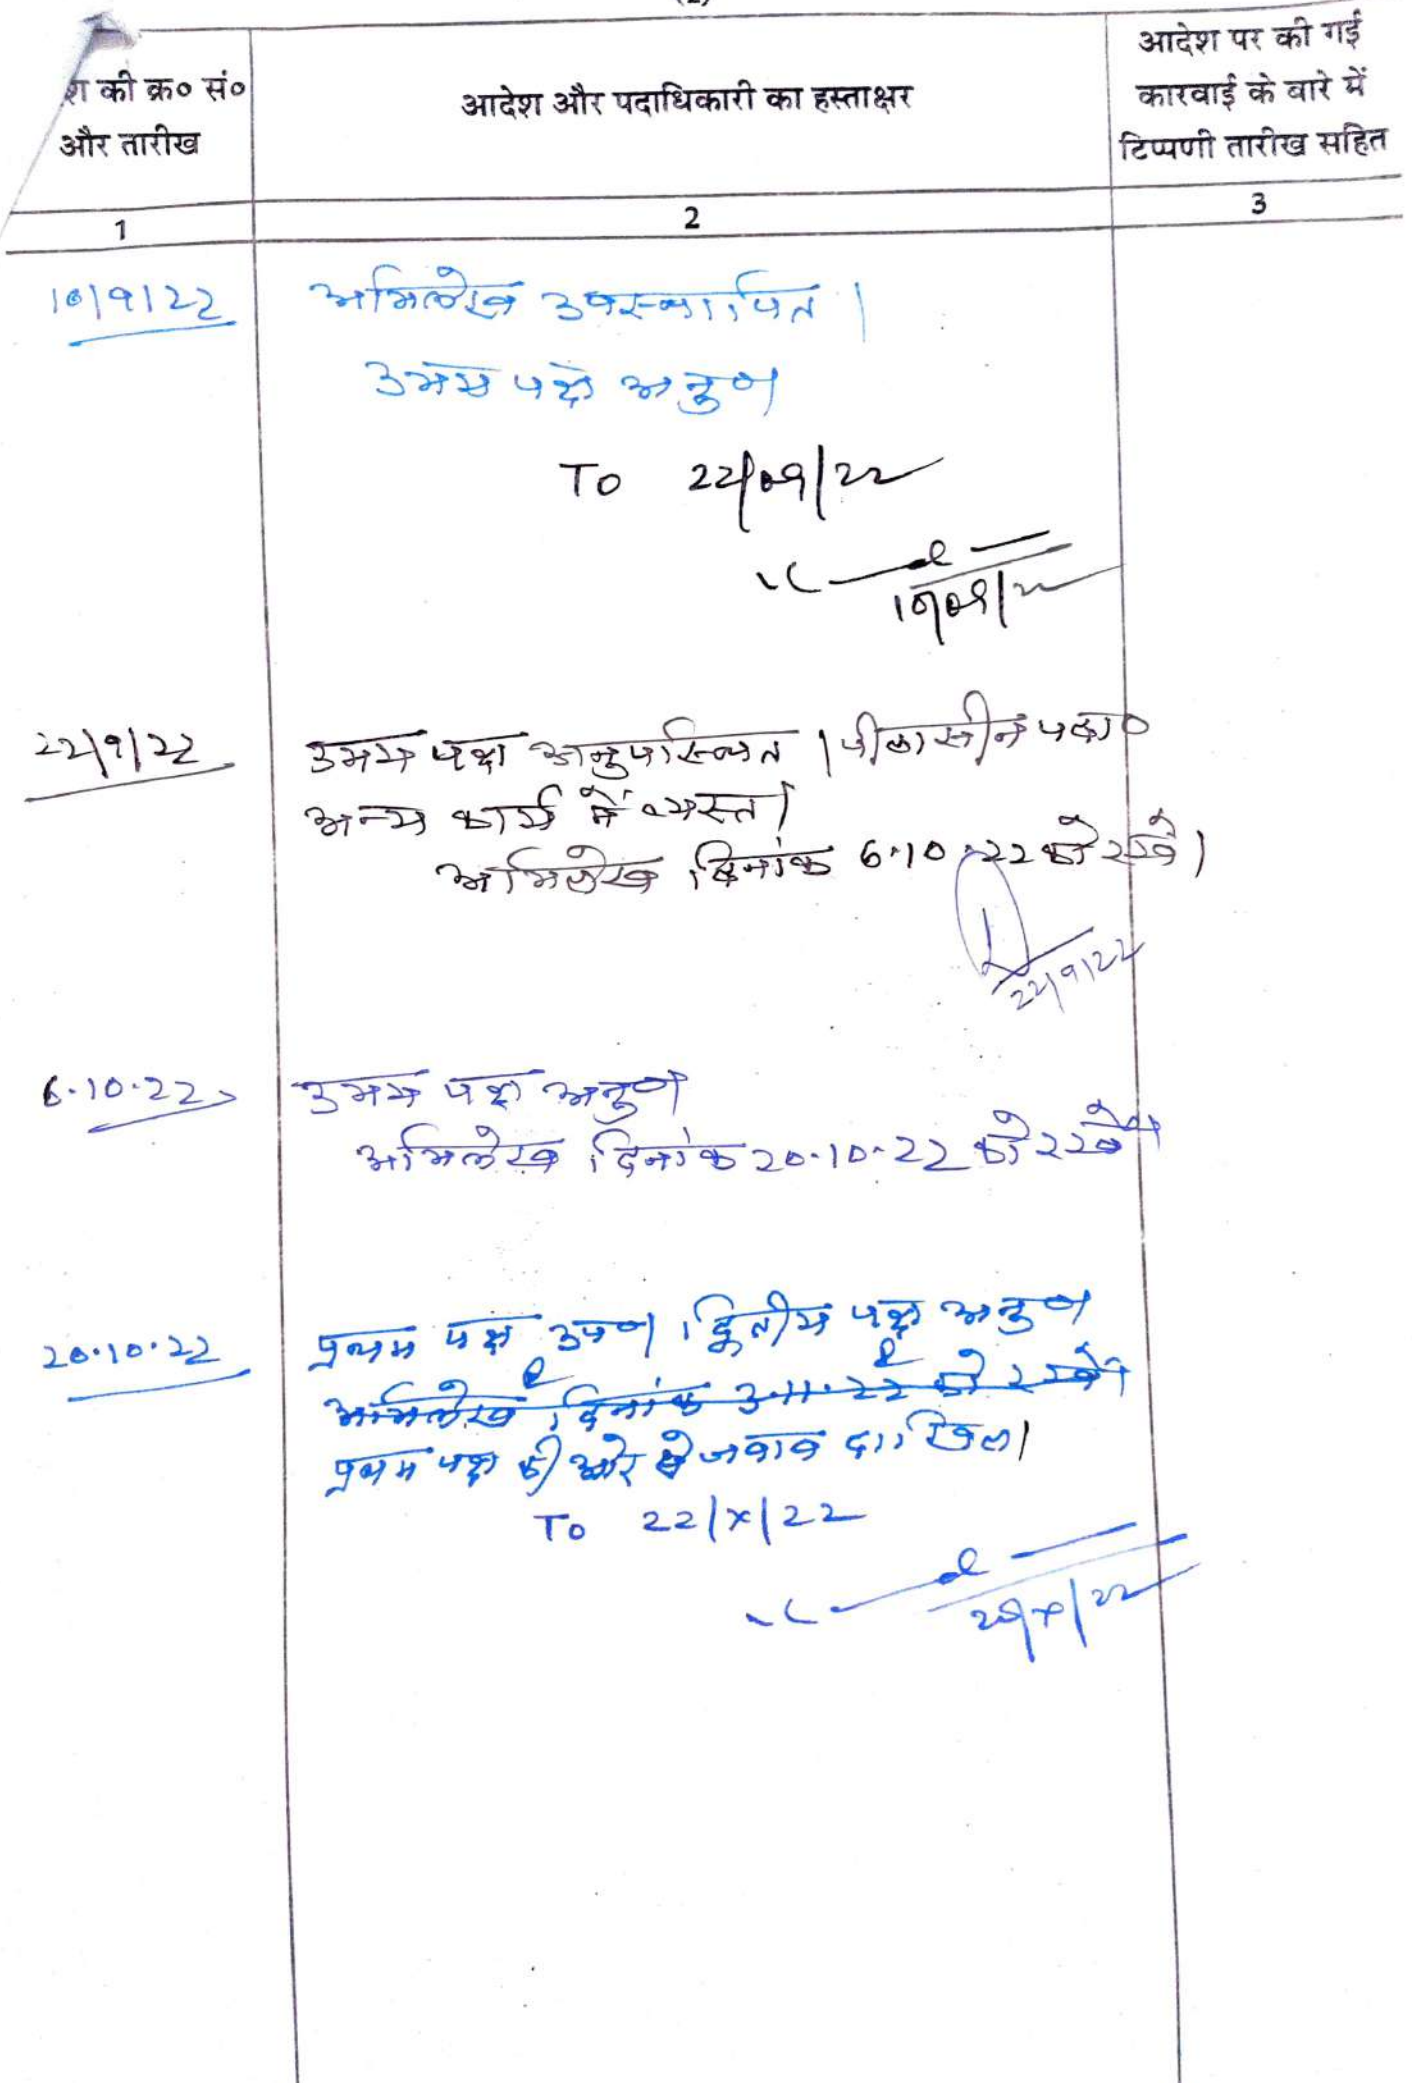 (2)
श की क्र० सं०
और तारीख
आदेश और पदाधिकारी का हस्ताक्षर
आदेश पर की गई
कारवाई के बारे में
टिप्पणी तारीख सहित
1
2
3
10/9/22
अभिलेख उपस्थापित।
उभय पक्ष अनु०।
To 22/09/22
10/09/22
22/9/22
उभय पक्ष अनुपस्थित। पीठासीन पदा०
अन्य कार्य में व्यस्त।
अभिलेख दिनांक 6.10.22 को रखें।
22/9/22
6.10.22
उभय पक्ष अनु०।
अभिलेख दिनांक 20.10.22 को रखें।
20.10.22
प्रथम पक्ष उप०। द्वितीय पक्ष अनु०।
अभिलेख दिनांक 3.11.22 को रखें।
प्रथम पक्ष की ओर से जवाब दाखिल।
To 22/X/22
20/X/22